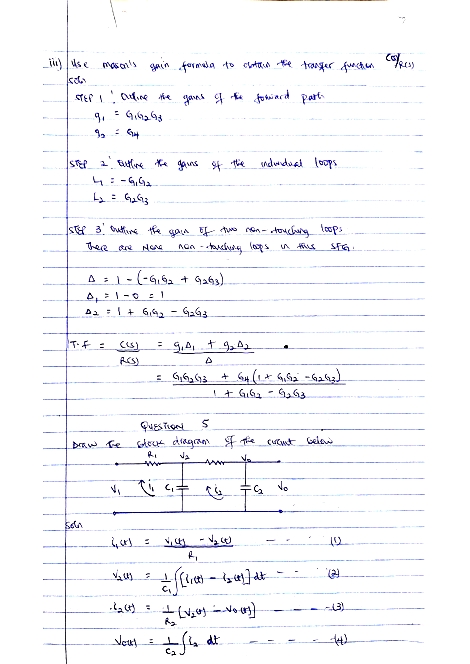 iii) Use mason's gain formula to obtain the transfer function C(s)/R(s)
soln
STEP 1: Outline the gains of the forward path
g₁ = G₁G₂G₃
g₂ = G₄
STEP 2: Outline the gains of the individual loops
L₁ = -G₁G₂
L₂ = G₂G₃
STEP 3: Outline the gain of two non-touching loops
There are None non-touching loops in this SFG.
Δ = 1 - (-G₁G₂ + G₂G₃)
Δ₁ = 1 - 0 = 1
Δ₂ = 1 + G₁G₂ - G₂G₃
T.F = C(s)/R(s) = (g₁Δ₁ + g₂Δ₂)/Δ
= (G₁G₂G₃ + G₄(1 + G₁G₂ - G₂G₃))/(1 + G₁G₂ - G₂G₃)
QUESTION 5
Draw the block diagram of the circuit below
R₁ V₂ V₀
V₁ i₁ C₁ i₂ C₂ V₀
Soln
i₁(t) = (V₁(t) - V₂(t))/R₁ - - - (1)
V₂(t) = 1/C₁ ∫[i₁(t) - i₂(t)] dt - - - (2)
i₂(t) = 1/R₂ [V₂(t) - V₀(t)] - - - (3)
V₀(t) = 1/C₂ ∫i₂ dt - - - - (4)